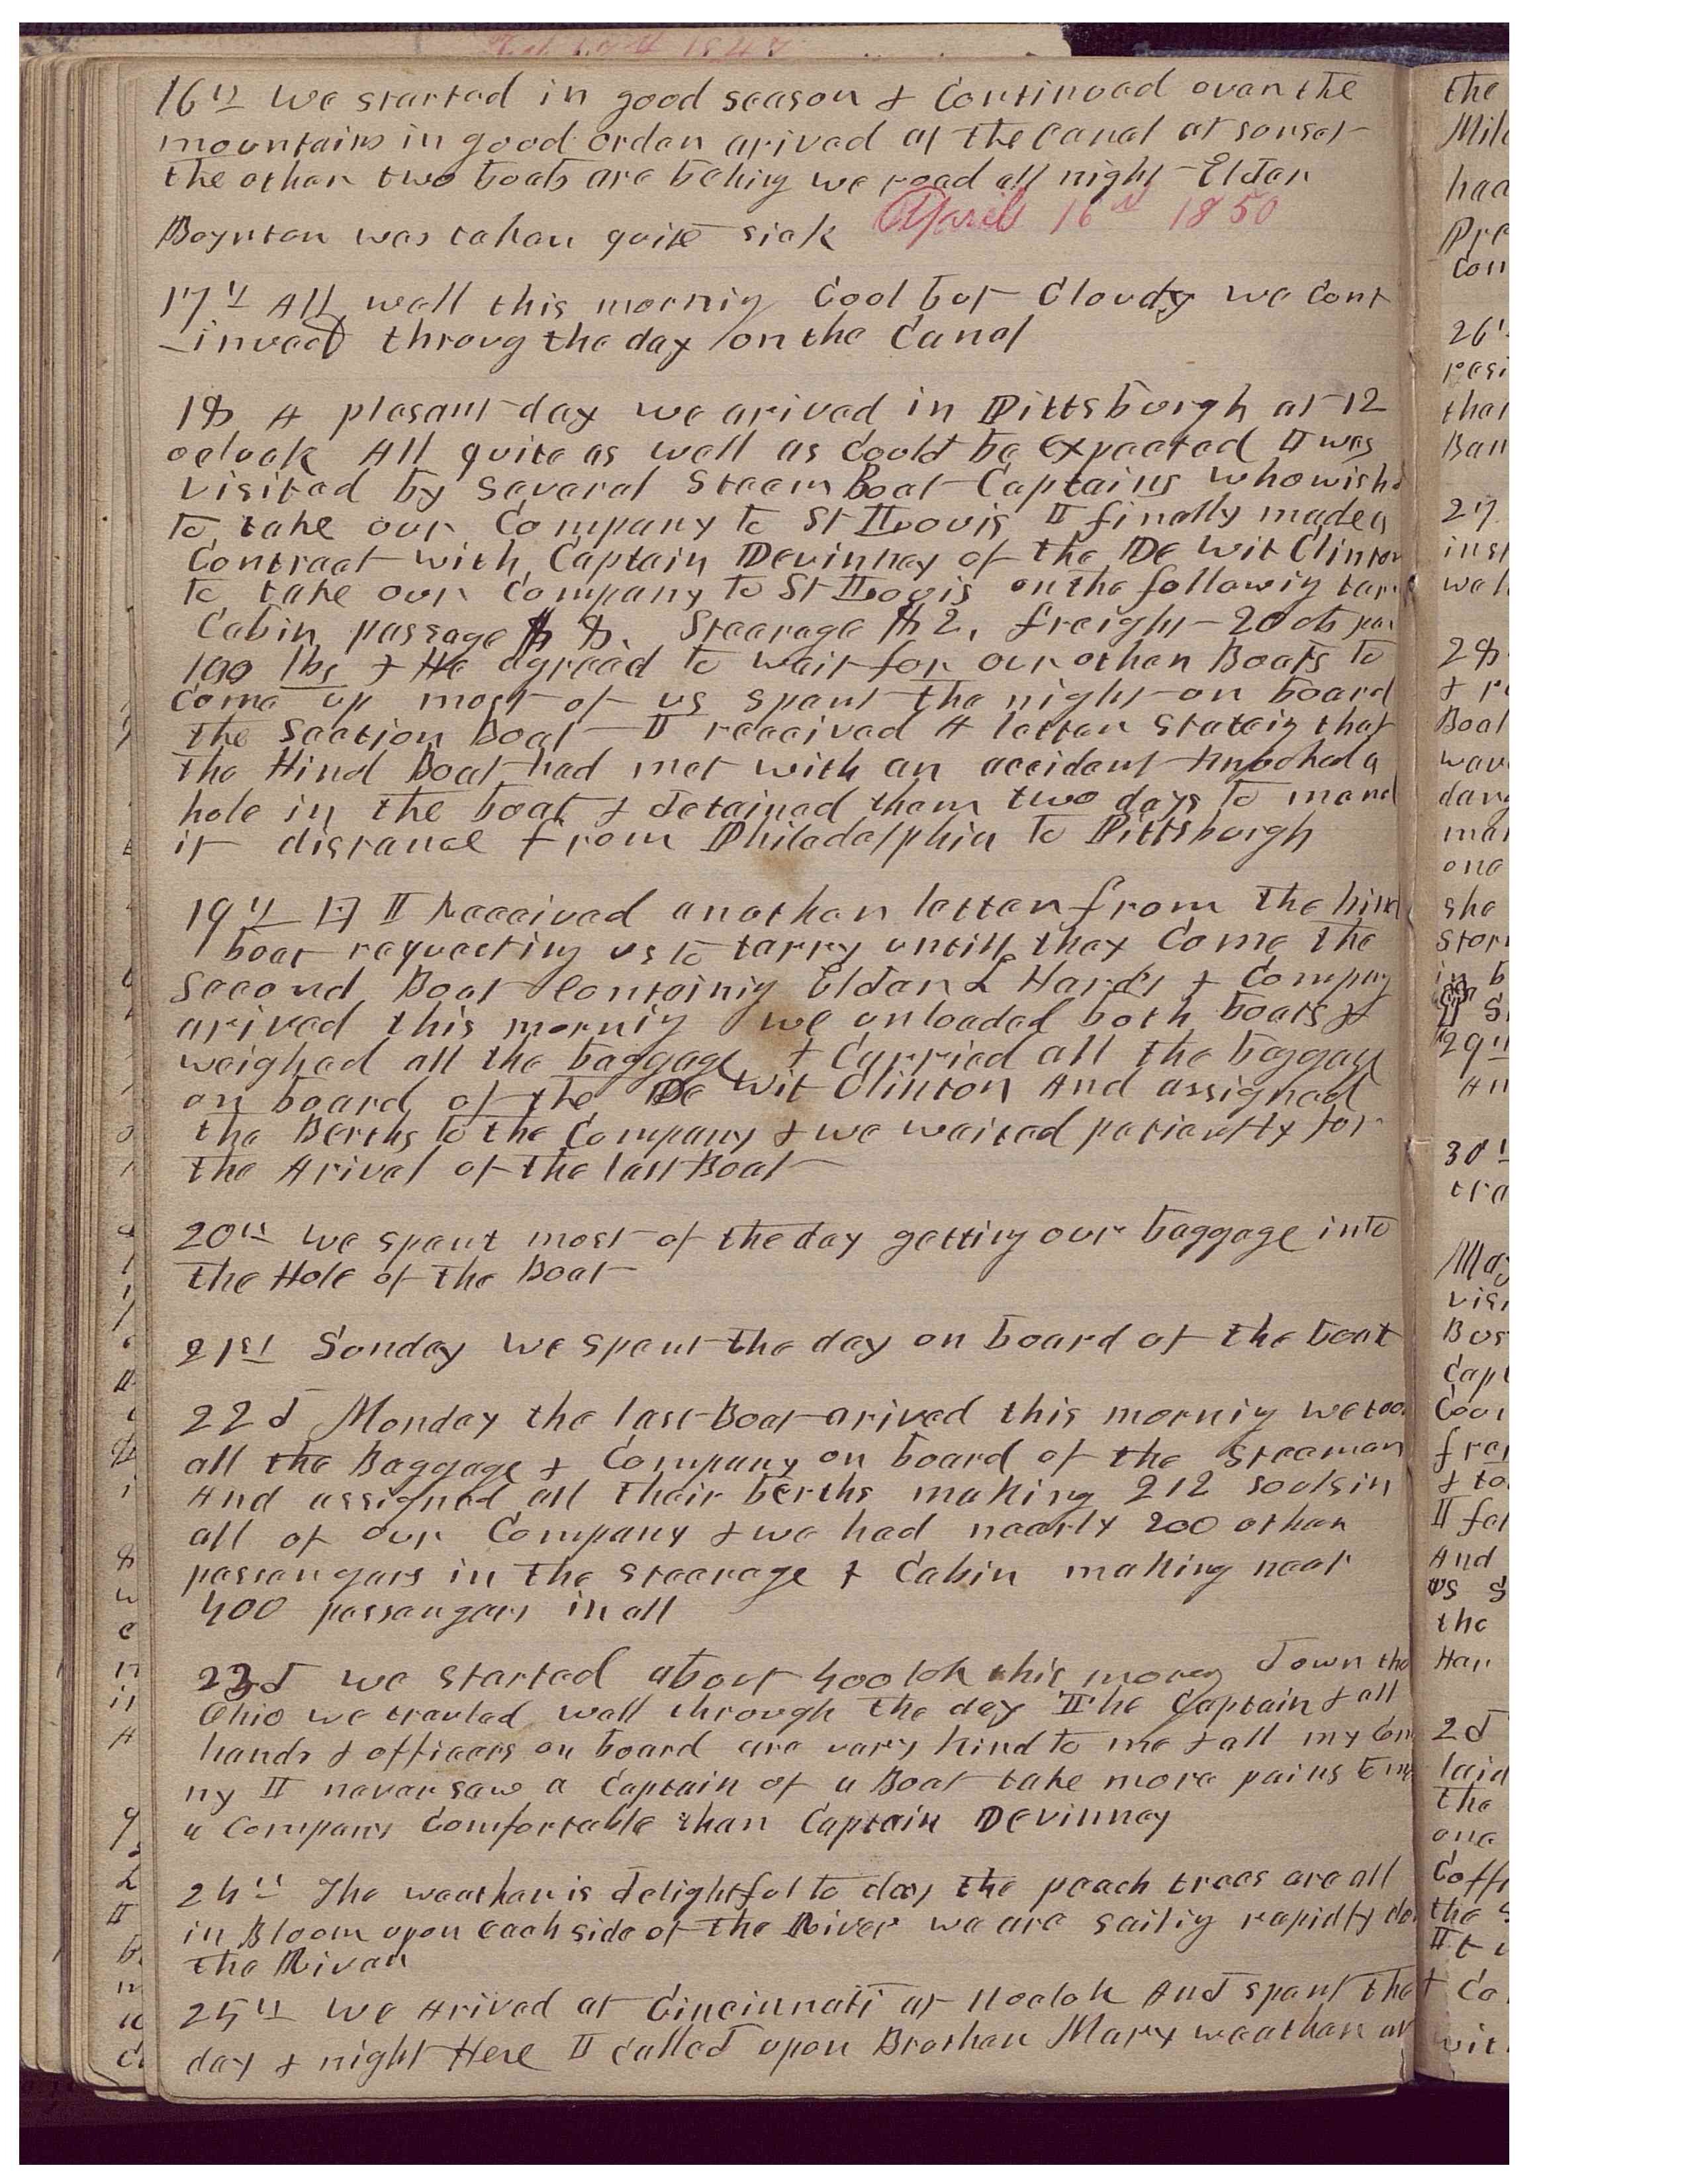 16th We started in good season & Continued over the
mountains in good order arived at the Canal at sunset
the other two boats are behing we road all night Elder
Boynton was taken quite sick April 16th 1850
17th All well this mornig Cool but Cloudy we Cont
-inued throug the day on the Canal
18 A plesant day we arived in Pittsburgh at 12
oclock All quite as well as Could be expected I was
visited by Several Steem Boat Captains who wishd
to take our Company to St Louis I finally made a
Contract with Captain Devinney of the De Wit Clinton
to take our Company to St Louis on the followig
Cabin passage $8. Steerage $2, freight 20 cts per
100 lbs & He agreed to wait for our other Boats to
Come up most of us spent the night on board
the Section Boat I received A letter Stateig that
the Hind Boat had met with an accident knocked a
hole in the boat & detained them two days to mend
it distance from Philadelphia to Pittsburgh
19th I Received another letter from the hind
boat requecting us to tarry untill they Come the
Second Boat Containig Elder L Hardy & Compay
arived this mornig we unloaded both boats &
weighed all the baggage & Carried all the baggage
on board of the De Wit Clinton And assigned
the Berths to the Company & we waited patiently for
the Arival of the last Boat
20th We spent most of the day gettig our baggage into
the Hole of the Boat
21st Sunday we spent the day on board of the boat
22d Monday the last Boat arived this mornig we too
all the Baggage & Company on board of the Steemer
And assigned all their berths making 212 souls in
all of our Company & we had nearly 200 other
passengers in the steerage & Cabin making near
400 passengers in all
23d we started about 4 oclok this down the
Ohio we traveled well through the day The Captain & all
hands & officers on board are vary kind to me & all my Com
ny I never saw a Captain of a Boat take more pains to
a Company Comfortable than Captain Devinney
24th The weather is delightful to day the peach trees are all
in Bloom upon each side of the River we are sailig rapidly do
the River
25th We Arived at Cincinnati at 11 oclok And spent the
day & night Here I called upon Brother Mary weather